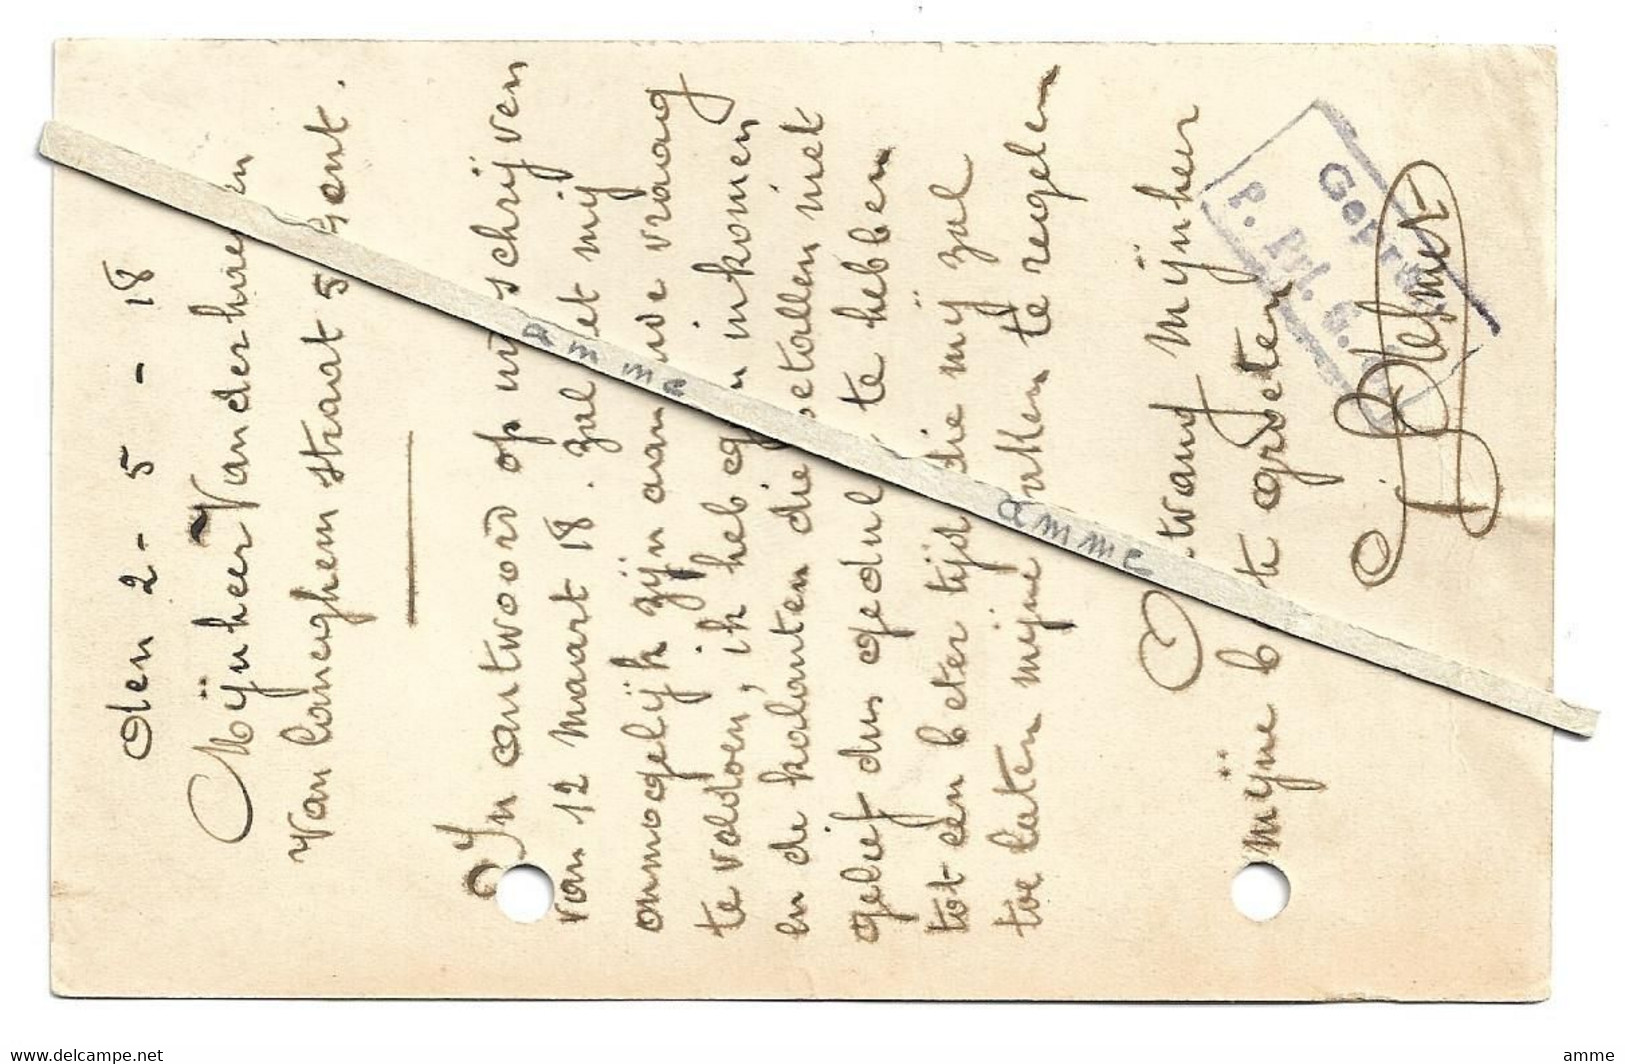 den 2 - 5 - 18
Mijnheer Vanderhae en
Van loneughem straat 5 Gent.
In antwoord op uw schrijven
van 12 maart 18. zal et mij
onmogelijk zijn aan uwe vraag
te voldoen, ik heb g n inkomen
en de kalanten die betallen niet
gelief dus gedul te hebben
tot een beter tijd die mij zal
toe laten mijne zaken te regelen
Otvang mijnheer
mijne b te groeten
Geprüft
P. Pyl. G.
amme
amme
www.delcampe.net
amme